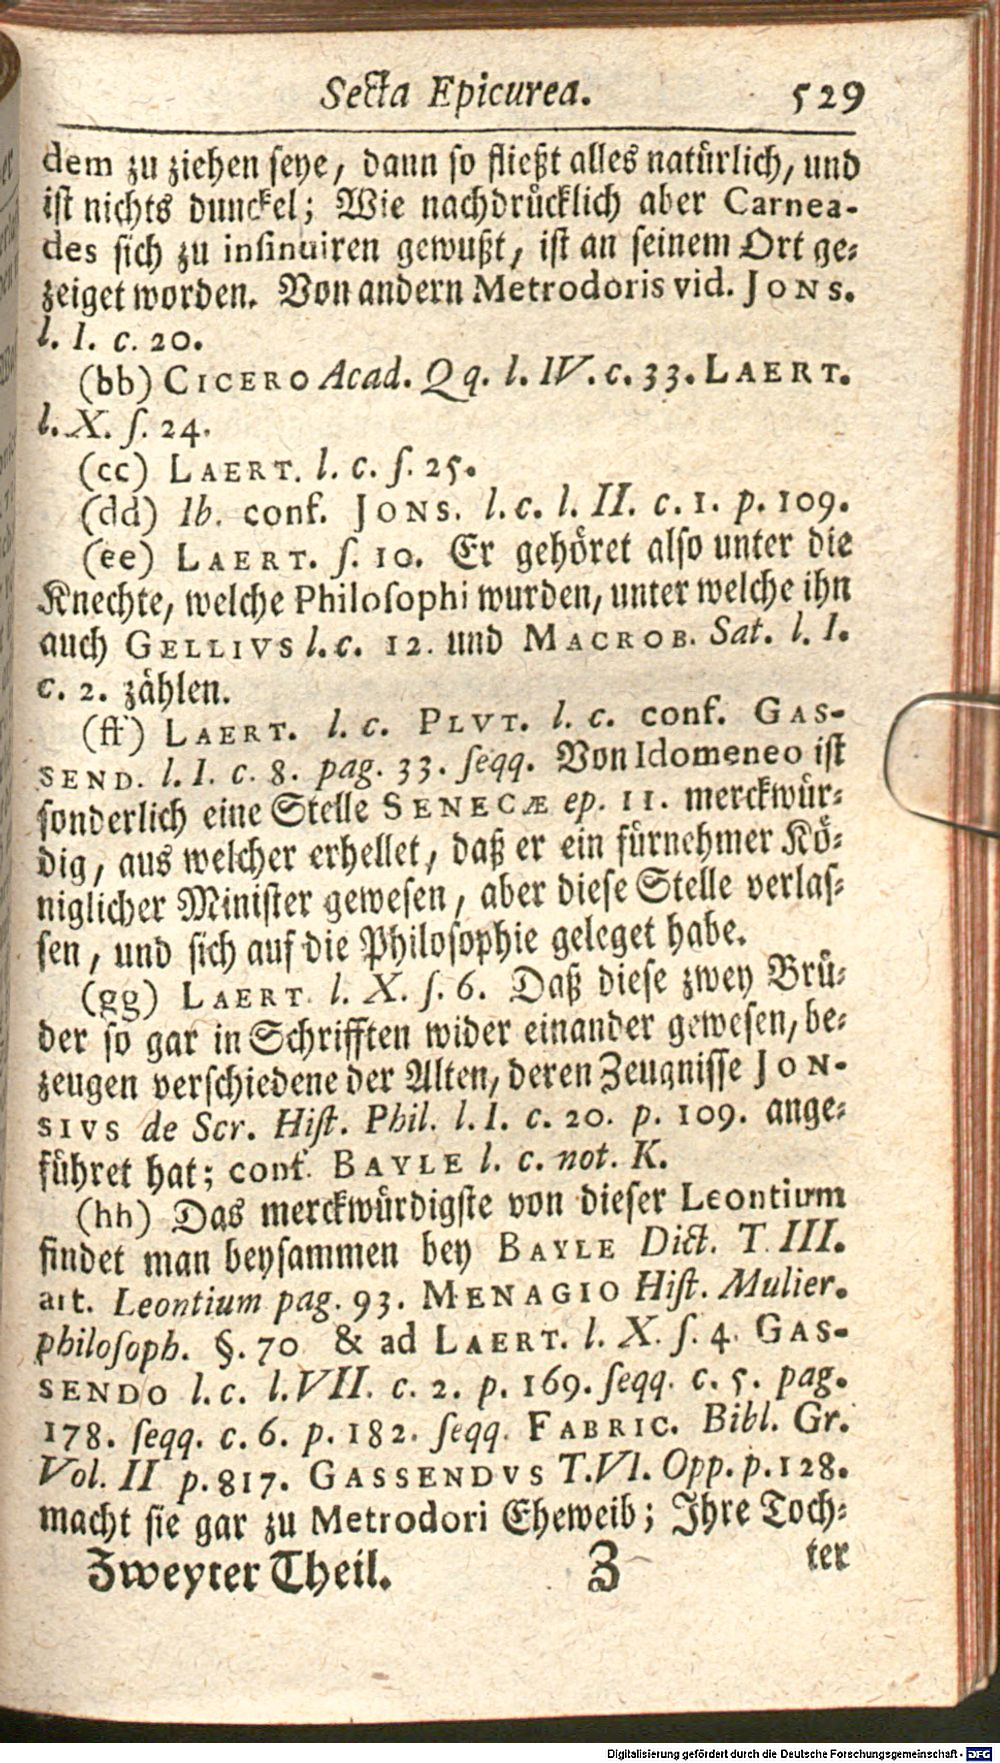 Secta Epicurea. 529
dem zu ziehen seye, dann so fließt alles natürlich, und
ist nichts dunckel; Wie nachdrücklich aber Carnea-
des sich zu insinuiren gewußt, ist an seinem Ort ge-
zeiget worden. Von andern Metrodoris vid. JONS.
l. I. c. 20.
(bb) CICERO Acad. Qq. l. IV. c. 33. LAERT.
l. X. ſ. 24.
(cc) LAERT. l. c. ſ. 25.
(dd) Ib. conf. JONS. l. c. l. II. c. 1. p. 109.
(ee) LAERT. ſ. 10. Er gehöret also unter die
Knechte, welche Philosophi wurden, unter welche ihn
auch GELLIVS l. c. 12. und MACROB. Sat. l. I.
c. 2. zählen.
(ff) LAERT. l. c. PLVT. l. c. conf. GAS-
SEND. l. I. c. 8. pag. 33. seqq. Von Idomeneo ist
sonderlich eine Stelle SENECÆ ep. 11. merckwür-
dig, aus welcher erhellet, daß er ein fürnehmer Kö-
niglicher Minister gewesen, aber diese Stelle verlas-
sen, und sich auf die Philosophie geleget habe.
(gg) LAERT. l. X. ſ. 6. Daß diese zwey Brü-
der so gar in Schrifften wider einander gewesen, be-
zeugen verschiedene der Alten, deren Zeugnisse JON-
SIVS de Scr. Hist. Phil. l. I. c. 20. p. 109. ange-
führet hat; conf. BAYLE l. c. not. K.
(hh) Das merckwürdigste von dieser Leontium
findet man beysammen bey BAYLE Dict. T. III.
art. Leontium pag. 93. MENAGIO Hist. Mulier.
philosoph. §. 70 & ad LAERT. l. X. ſ. 4. GAS-
SENDO l. c. l. VII. c. 2. p. 169. seqq. c. 5. pag.
178. seqq. c. 6. p. 182. seqq. FABRIC. Bibl. Gr.
Vol. II p. 817. GASSENDVS T. VI. Opp. p. 128.
macht sie gar zu Metrodori Eheweib; Ihre Toch-
Zweyter Theil. Z ter
Digitalisierung gefördert durch die Deutsche Forschungsgemeinschaft - DFG